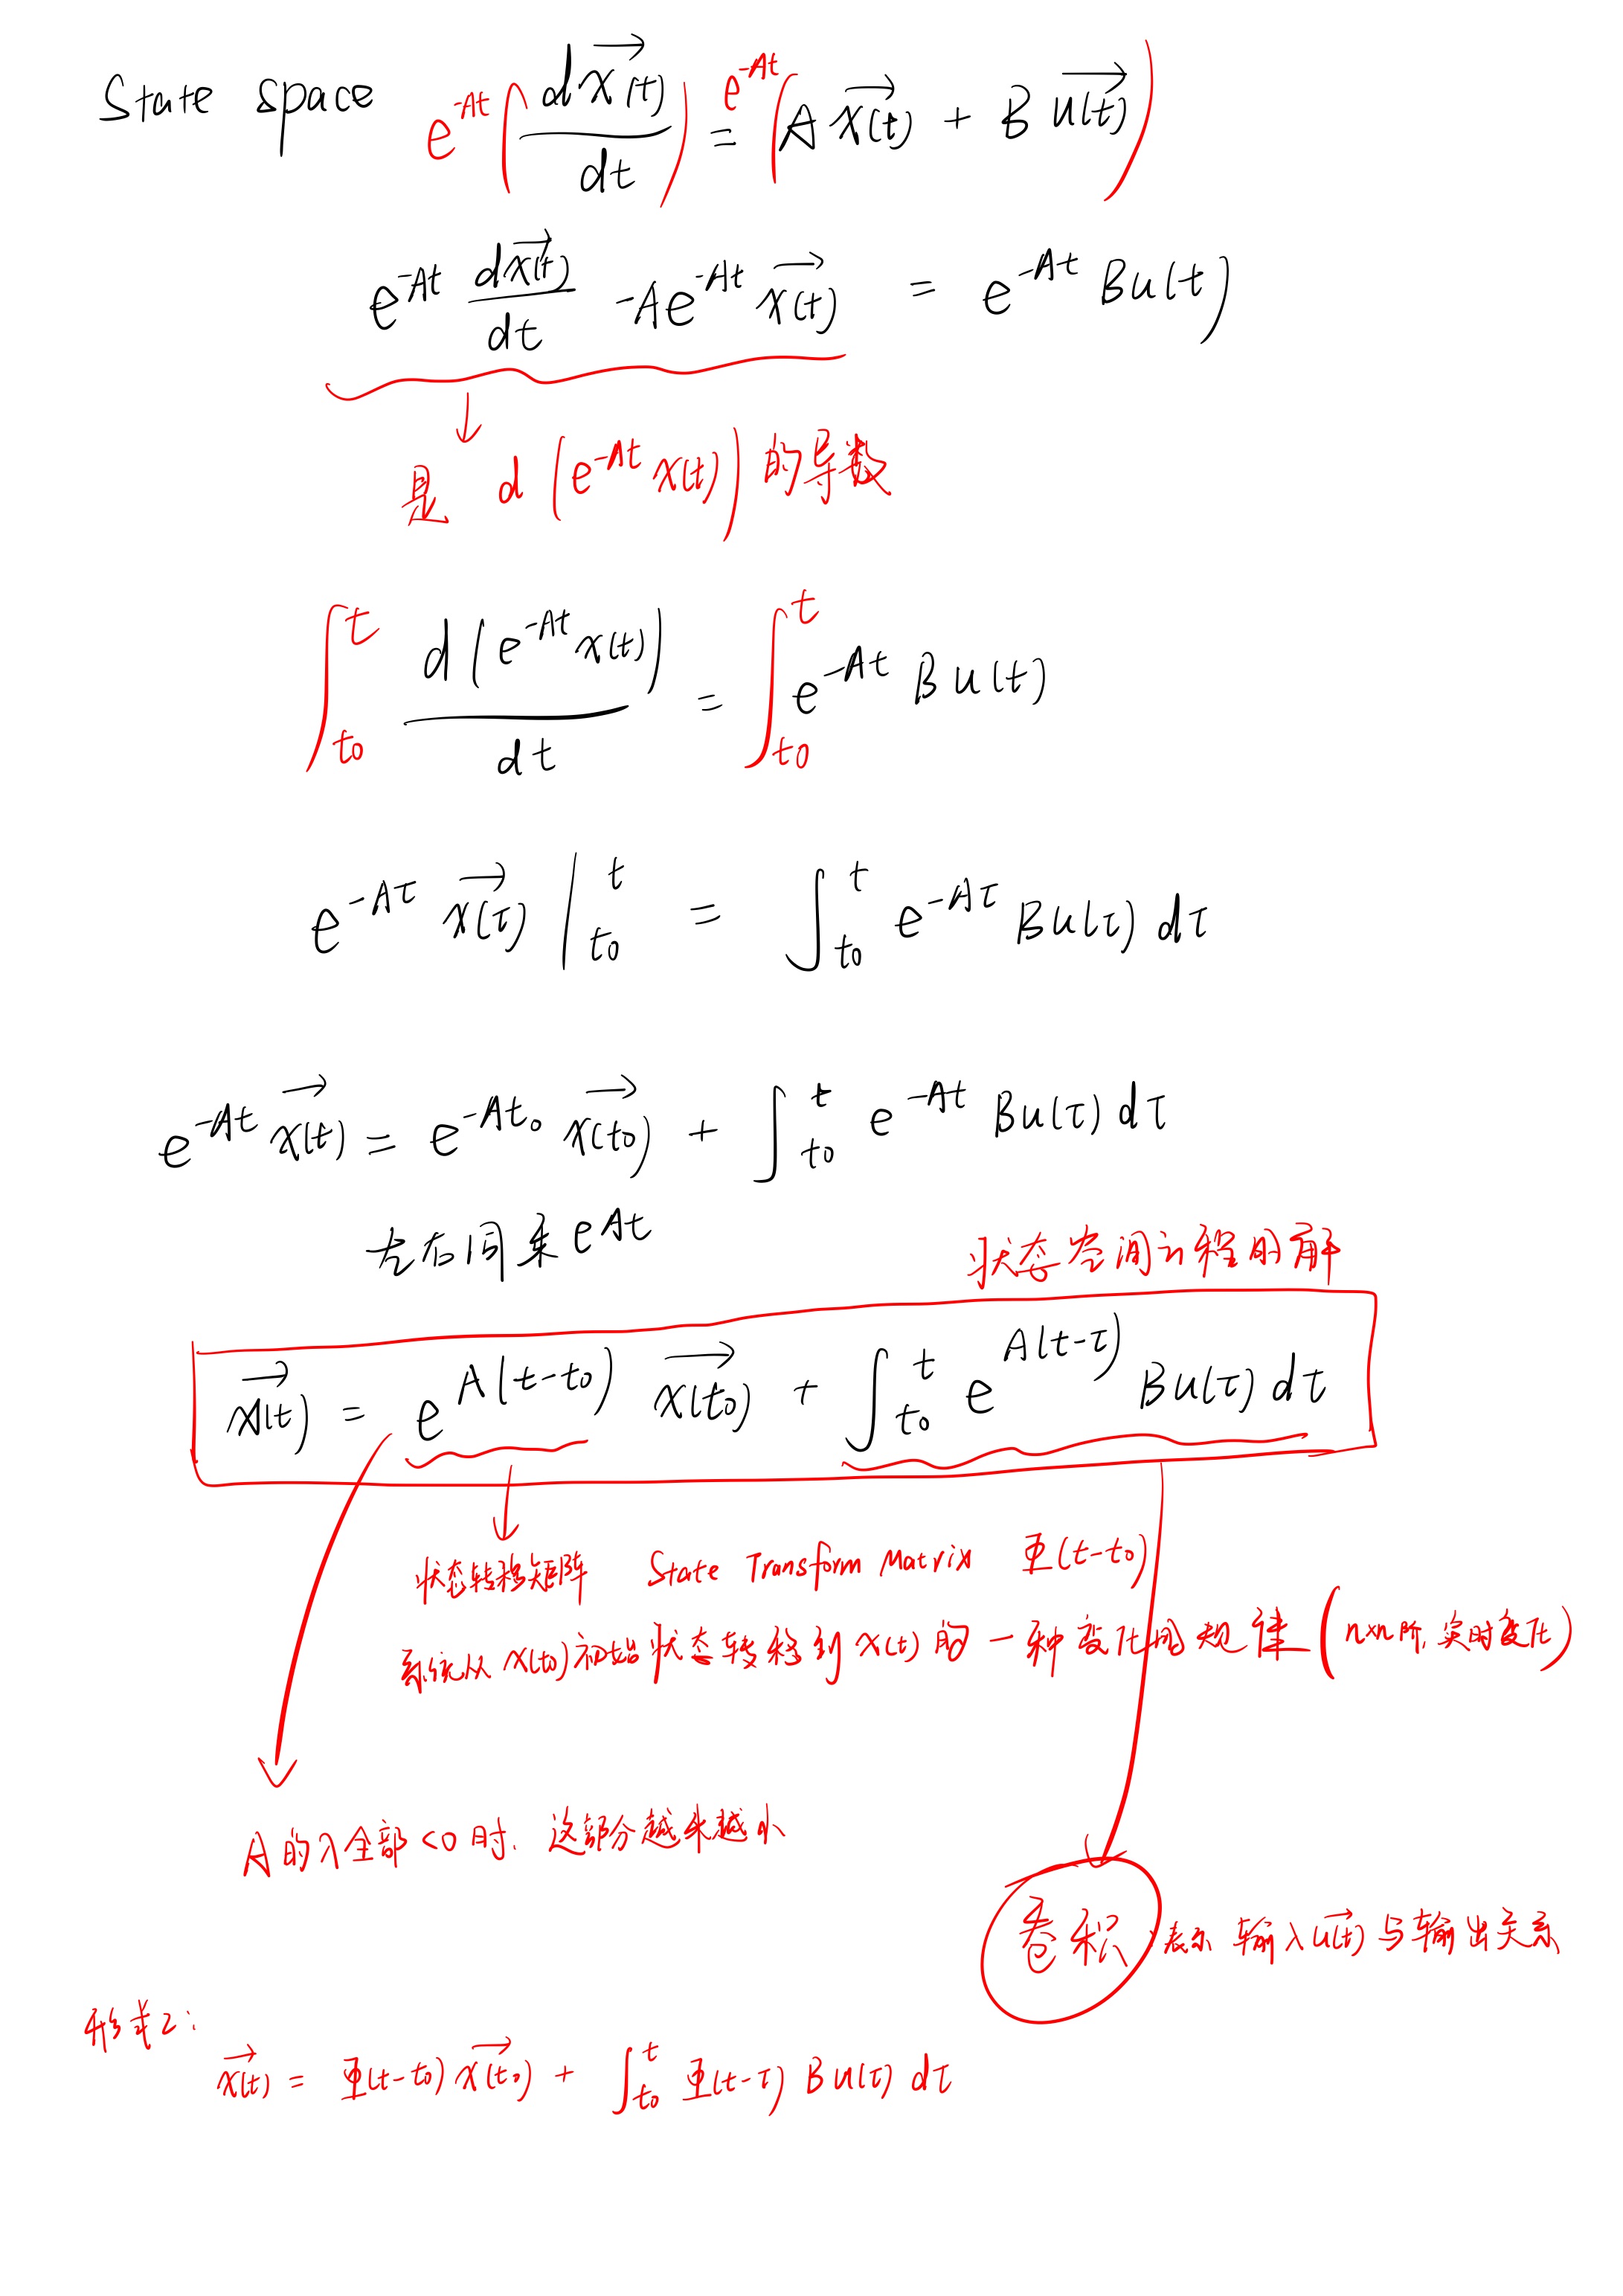 State space e^{-At}( dx(t)/dt ) = e^{-At}( A x(t) + B u(t) )
e^{-At} dx(t)/dt - A e^{-At} x(t) = e^{-At} B u(t)
是 d (e^{-At} x(t)) 的导数
∫_{t0}^{t} d(e^{-At} x(t))/dt = ∫_{t0}^{t} e^{-At} B u(t)
e^{-Aτ} x(τ) |_{t0}^{t} = ∫_{t0}^{t} e^{-Aτ} B u(τ) dτ
e^{-At} x(t) = e^{-At0} x(t0) + ∫_{t0}^{t} e^{-At} B u(τ) dτ
左右同乘 e^{At}
状态空间方程的解
x(t) = e^{A(t-t0)} x(t0) + ∫_{t0}^{t} e^{A(t-τ)} B u(τ) dτ
状态转移矩阵 State Transform Matrix Φ(t-t0)
系统从 x(t0) 初始状态转移到 x(t) 的一种变化的规律 (n×n阶, 实时变化)
A的λ全部<0时, 这部分越来越小
卷积 表示 输入u(t) 与输出关系
形式2:
x(t) = Φ(t-t0) x(t0) + ∫_{t0}^{t} Φ(t-τ) B u(τ) dτ